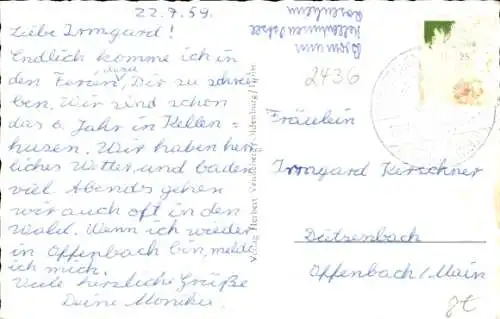 22.7.59.
Liebe Irmgard!
Endlich komme ich in
den Ferien dazu, Dir zu schrei-
ben. Wir sind schon
das 6. Jahr in Kellen-
husen. Wir haben herr-
liches Wetter, und baden
viel. Abends gehen
wir auch oft in den
Wald. Wenn ich wieder
in Offenbach bin, melde
ich mich.
Viele herzliche Grüße
Deine Monika.
Verlag Herbert Oldenburg/Holstein
Kellenhusen/Ostsee
Rosenheim
2436
Fräulein
Irmgard Kerschner
Dietzenbach
Offenbach/Main